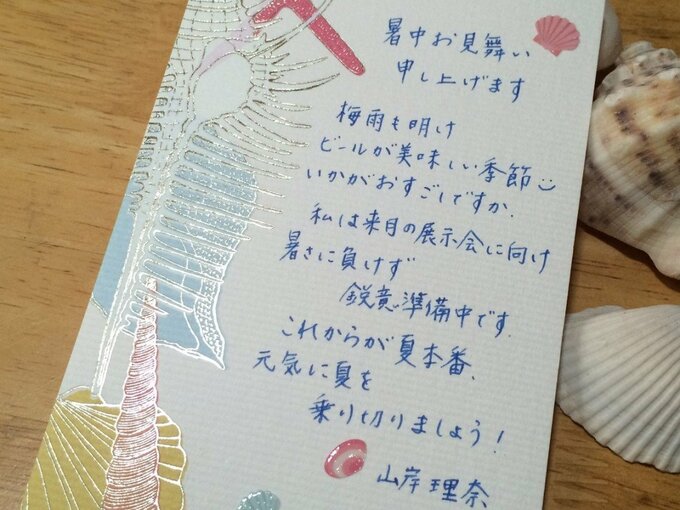 暑中お見舞い
申し上げます
梅雨も明け
ビールが美味しい季節
いかがおすごしですか.
私は来月の展示会に向け
暑さに負けず
鋭意準備中です.
これからが夏本番、
元気に夏を
乗り切りましょう!
山岸理奈